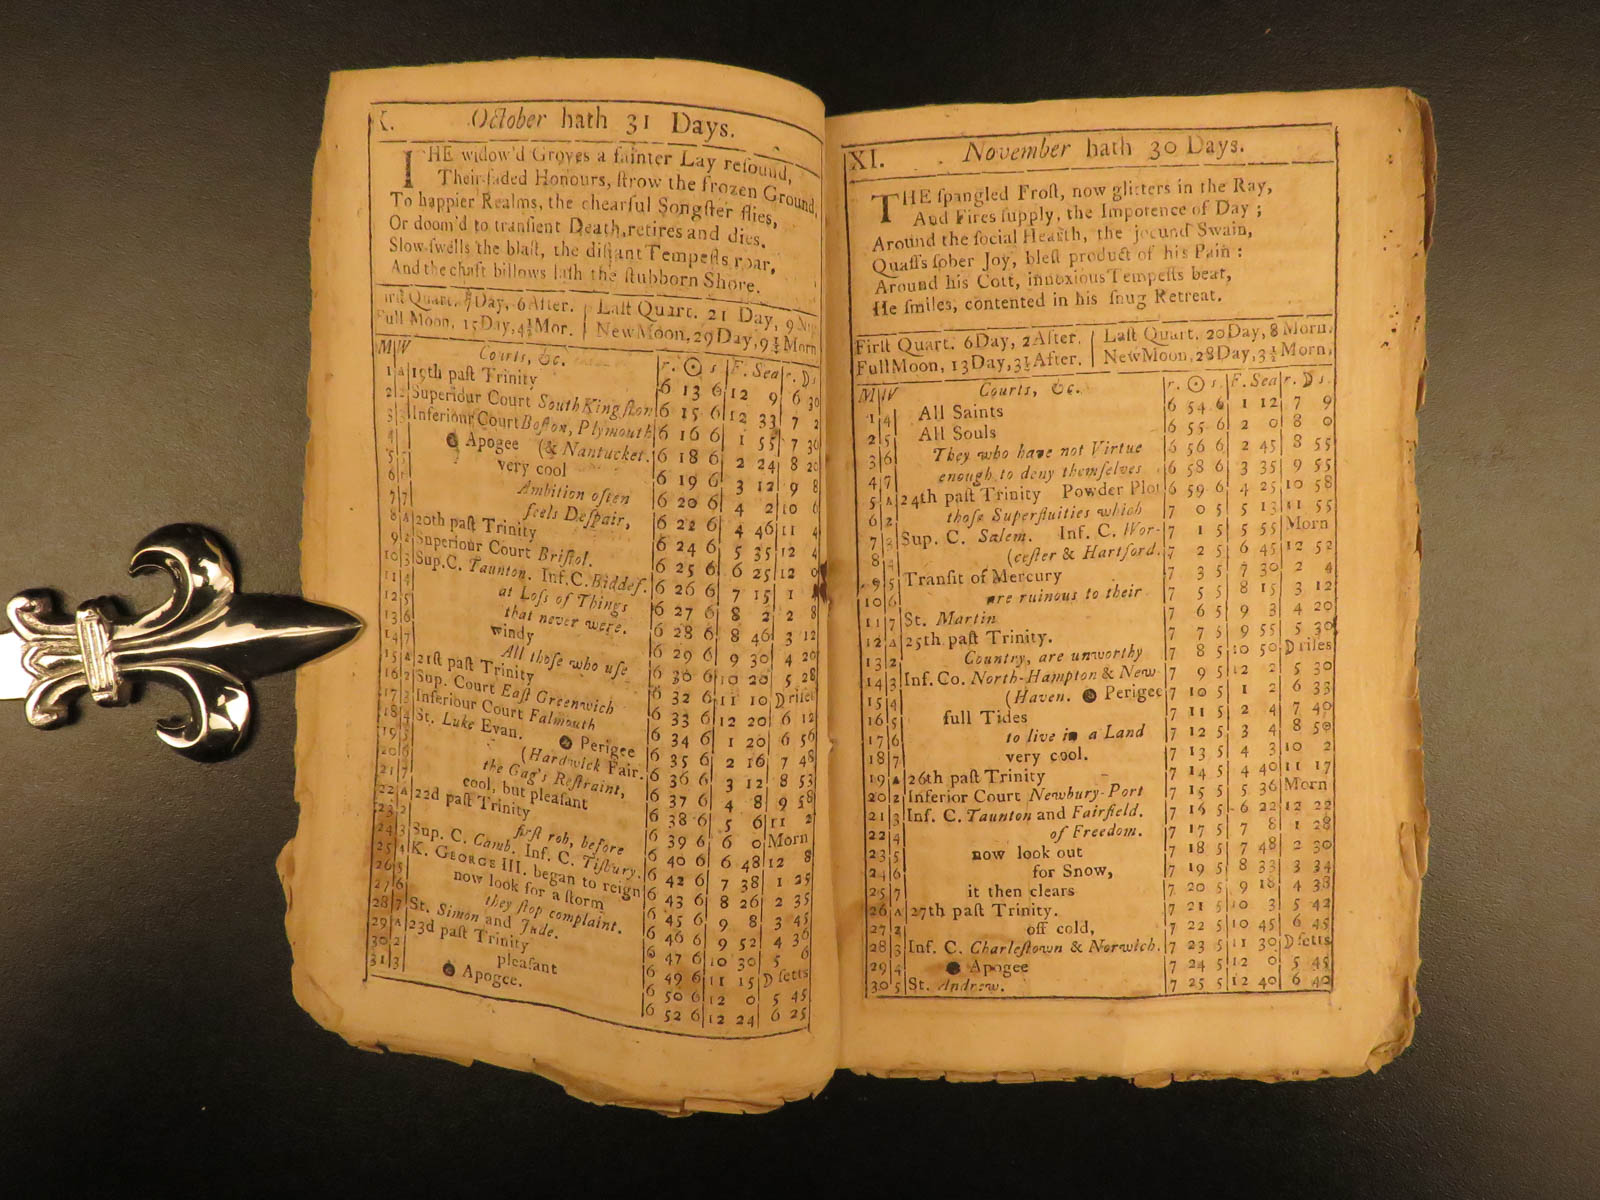 X. October hath 31 Days.
THE widow'd Groves a fainter Lay reſound,
Their faded Honours, ſtrow the frozen Ground,
To happier Realms, the chearful Songſter flies,
Or doom'd to tranſient Death, retires and dies.
Slow ſwells the blaſt, the diſtant Tempeſts roar,
And the chaft billows laſh the ſtubborn Shore.
Quart. 7 Day, 6 After. | Laſt Quart. 21 Day, 9
Full Moon, 15 Day, 4½ Mor. | New Moon, 29 Day, 9½ Morn
M W Courts, &c. r. ☉ s F. Sea r. D s
1 A 19th paſt Trinity 6 13 6 12 9 6 30
2 2 Superiour Court South Kingſton 6 15 6 12 33 7 2
3 3 Inferiour Court Boſton, Plymouth 6 16 6 1 55 7 30
4 Apogee (& Nantucket. 6 18 6 2 24 8 20
5 very cool 6 19 6 3 12 9 8
6 Ambition often 6 20 6 4 2 10 6
7 7 feels Deſpair, 6 22 6 4 46 11 4
8 A 20th paſt Trinity 6 24 6 5 35 12 4
9 2 Superiour Court Briſtol. 6 25 6 6 25 12 0
10 3 Sup. C. Taunton. Inf. C. Biddef. 6 26 6 7 15 1
11 4 at Loſs of Things 6 27 6 8 2 2 8
12 5 that never were. 6 28 6 8 46 3 12
13 6 windy 6 29 6 9 30 4 20
14 7 All thoſe who uſe 6 30 6 10 20 5 28
15 A 21ſt paſt Trinity 6 32 6 11 10 D riſes
16 2 Sup. Court Eaſt Greenwich 6 33 6 12 20 6 12
17 3 Inferiour Court Falmouth 6 34 6 1 20 6 56
18 4 St. Luke Evan. Perigee 6 35 6 2 16 7 48
19 5 (Hardwick Fair. 6 36 6 3 12 8 53
20 6 the Gag's Reſtraint, 6 37 6 4 8 9 58
21 7 cool, but pleaſant 6 38 6 5 6 11 2
22 A 22d paſt Trinity 6 39 6 6 0 Morn
23 2 firſt rob, before 6 40 6 6 48 12 8
24 3 Sup. C. Camb. Inf. C. Tiſbury. 6 42 6 7 38 1 25
25 4 K. GEORGE III. began to reign 6 43 6 8 26 2 35
26 5 now look for a ſtorm 6 45 6 9 8 3 45
27 6 they ſtop complaint. 6 46 6 9 52 4 36
28 7 St. Simon and Jude. 6 47 6 10 30 5 6
29 A 23d paſt Trinity 6 49 6 11 15 D ſetts
30 2 pleaſant 6 50 6 12 0 5 45
31 3 Apogee. 6 52 6 12 24 6 25
XI. November hath 30 Days.
THE ſpangled Froſt, now glitters in the Ray,
And Fires ſupply, the Impotence of Day;
Around the ſocial Hearth, the jocund Swain,
Quaffs ſober Joy, bleſt product of his Pain:
Around his Cott, innoxious Tempeſts beat,
He ſmiles, contented in his ſnug Retreat.
Firſt Quart. 6 Day, 2 After. | Laſt Quart. 20 Day, 8 Morn.
Full Moon, 13 Day, 3½ After. | New Moon, 28 Day, 3½ Morn,
M W Courts, &c. r. ☉ s. F. Sea r. D s.
1 4 All Saints 6 54 6 1 12 7 9
2 5 All Souls 6 55 6 2 0 8 0
3 6 They who have not Virtue 6 56 6 2 45 8 55
4 7 enough to deny themſelves 6 58 6 3 35 9 55
5 A 24th paſt Trinity Powder Plot 6 59 6 4 25 10 58
6 2 thoſe Superfluities which 7 0 5 5 13 11 55
7 3 Sup. C. Salem. Inf. C. Wor- 7 1 5 5 55 Morn
8 4 (ceſter & Hartford. 7 2 5 6 45 12 52
9 5 Tranſit of Mercury 7 3 5 7 30 2 4
10 6 are ruinous to their 7 5 5 8 15 3 12
11 7 St. Martin 7 6 5 9 3 4 20
12 A 25th paſt Trinity. 7 7 5 9 55 5 30
13 2 Country, are unworthy 7 8 5 10 50 D riſes
14 3 Inf. Co. North-Hampton & New- 7 9 5 12 2 5 30
15 4 (Haven. Perigee 7 10 5 1 2 6 33
16 5 full Tides 7 11 5 2 4 7 40
17 6 to live in a Land 7 12 5 3 4 8 50
18 7 very cool. 7 13 5 4 3 10 2
19 A 26th paſt Trinity 7 14 5 4 40 11 17
20 2 Inferior Court Newbury-Port 7 15 5 5 36 Morn
21 3 Inf. C. Taunton and Fairfield. 7 16 5 6 22 12 22
22 4 of Freedom. 7 17 5 7 8 1 28
23 5 now look out 7 18 5 7 48 2 30
24 6 for Snow, 7 19 5 8 33 3 34
25 7 it then clears 7 20 5 9 18 4 38
26 A 27th paſt Trinity. 7 21 5 10 3 5 42
27 2 off cold, 7 22 5 10 45 6 45
28 3 Inf. C. Charleſtown & Norwich. 7 23 5 11 30 D ſetts
29 4 Apogee 7 24 5 12 0 5 45
30 5 St. Andrew. 7 25 5 12 40 6 40